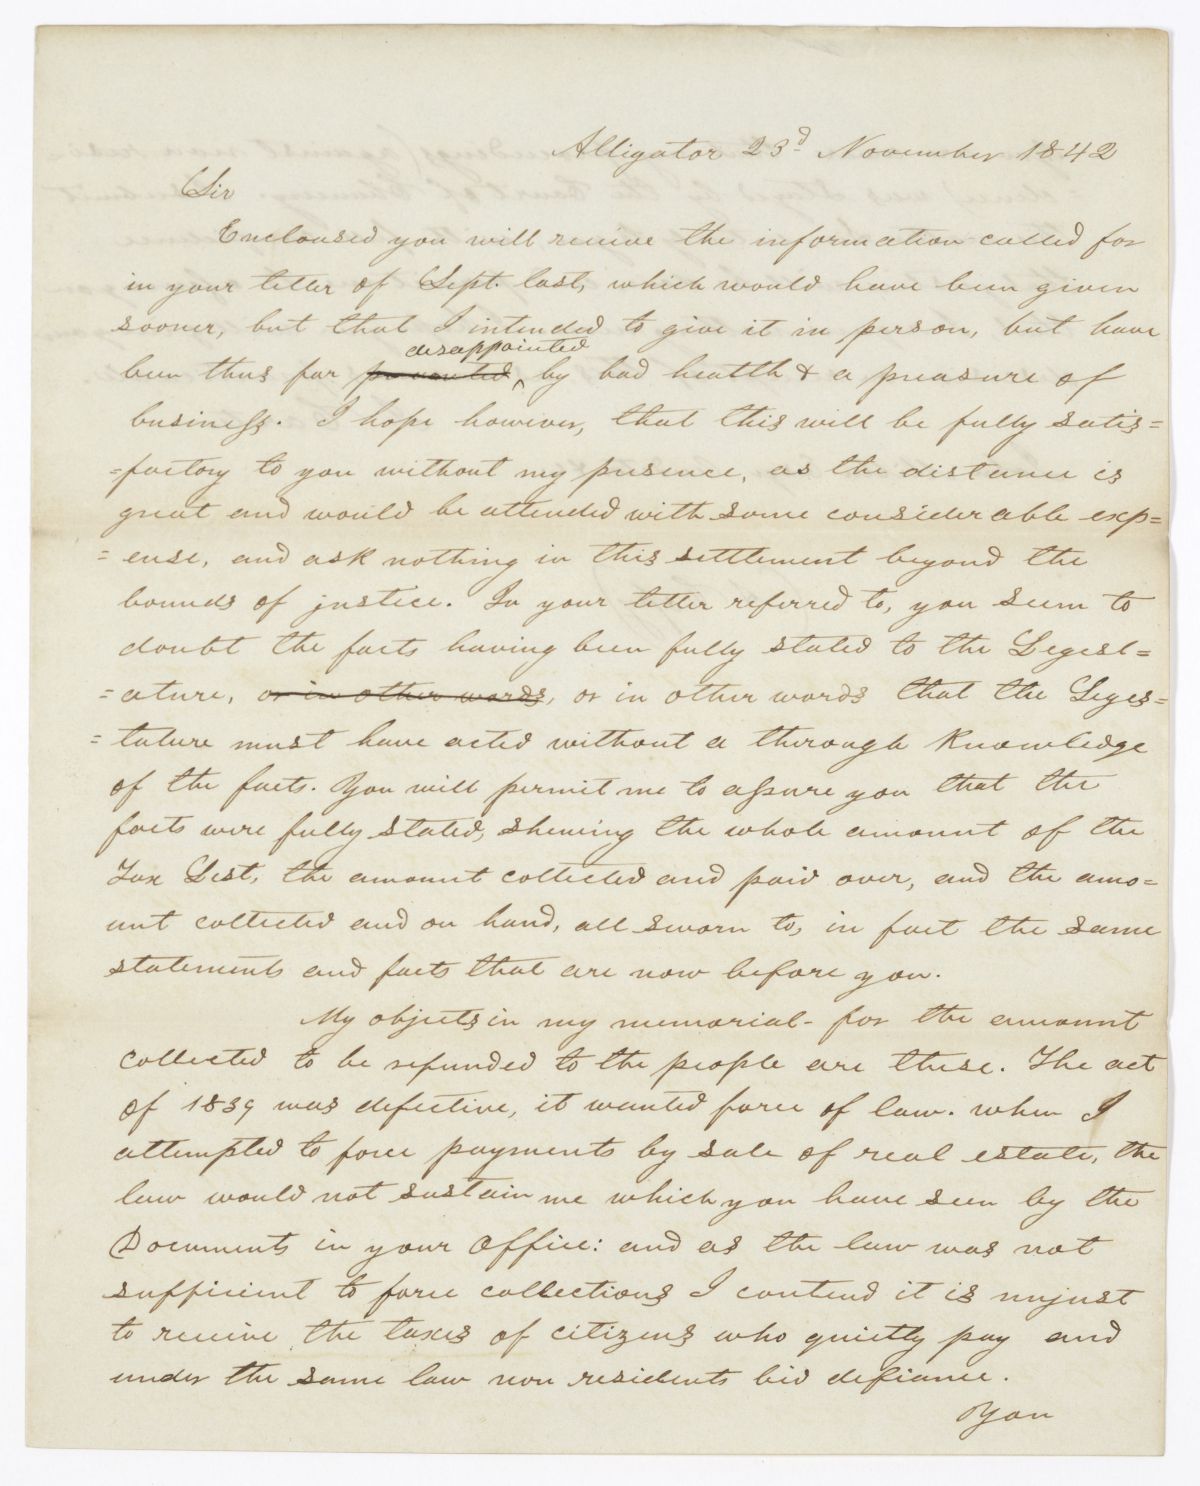 Alligator 23d November 1842
Sir
Encloused you will receive the information called for
in your letter of Sept. last, which would have been given
sooner, but that I intended to give it in person, but have
disappointed
been thus far prevented, by bad health & a preasure of
business. I hope however, that this will be fully satis=
=factory to you without my presence, as the distance is
great and would be attended with some considerable exp=
=ense, and ask nothing in this settlement beyond the
bounds of justice. In your letter referred to, you seem to
doubt the facts having been fully stated to the Legesl=
=ature, or in other words, or in other words that the Leges=
=tature must have acted without a through Knowledge
of the facts. You will permit me to assure you that the
facts were fully stated, shewing the whole amount of the
Tax List, the amount collected and paid over, and the amo=
unt collected and on hand, all sworn to, in fact the same
statements and facts that are now before you.
My objects in my memorial - for the amount
collected to be refunded to the people are these. The act
of 1839 was defective, it wanted force of law. when I
attempted to force payments by sale of real estate, the
law would not sustain me which you have seen by the
Documents in your Office: and as the law was not
sufficient to force collections I contend it is unjust
to receive the taxes of citizens who quietly pay and
under the same law non residents bid defiance.
You